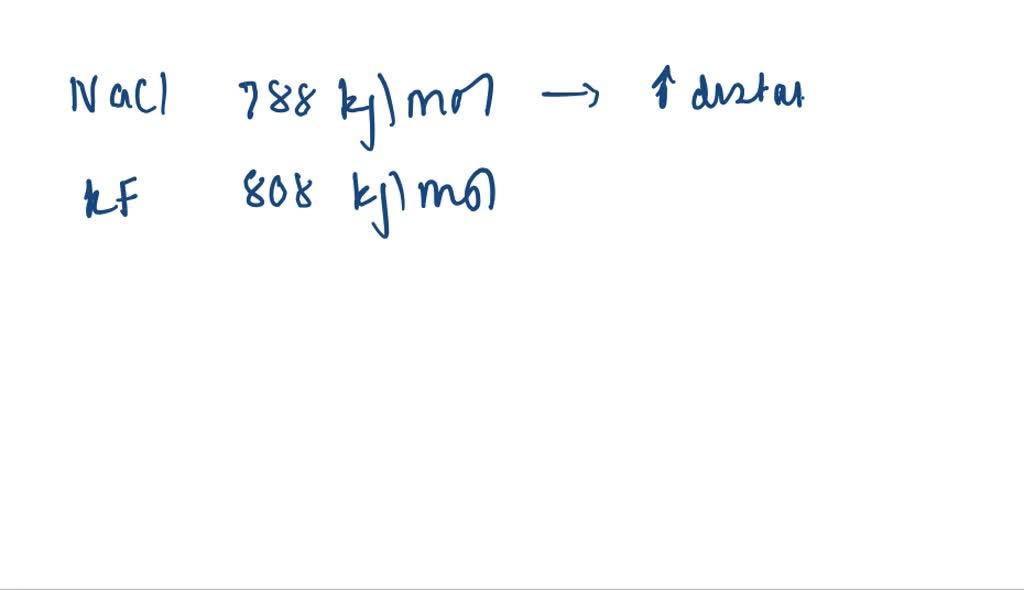 NaCl 788 kJ/mol → ↑ distan
KF 808 kJ/mol